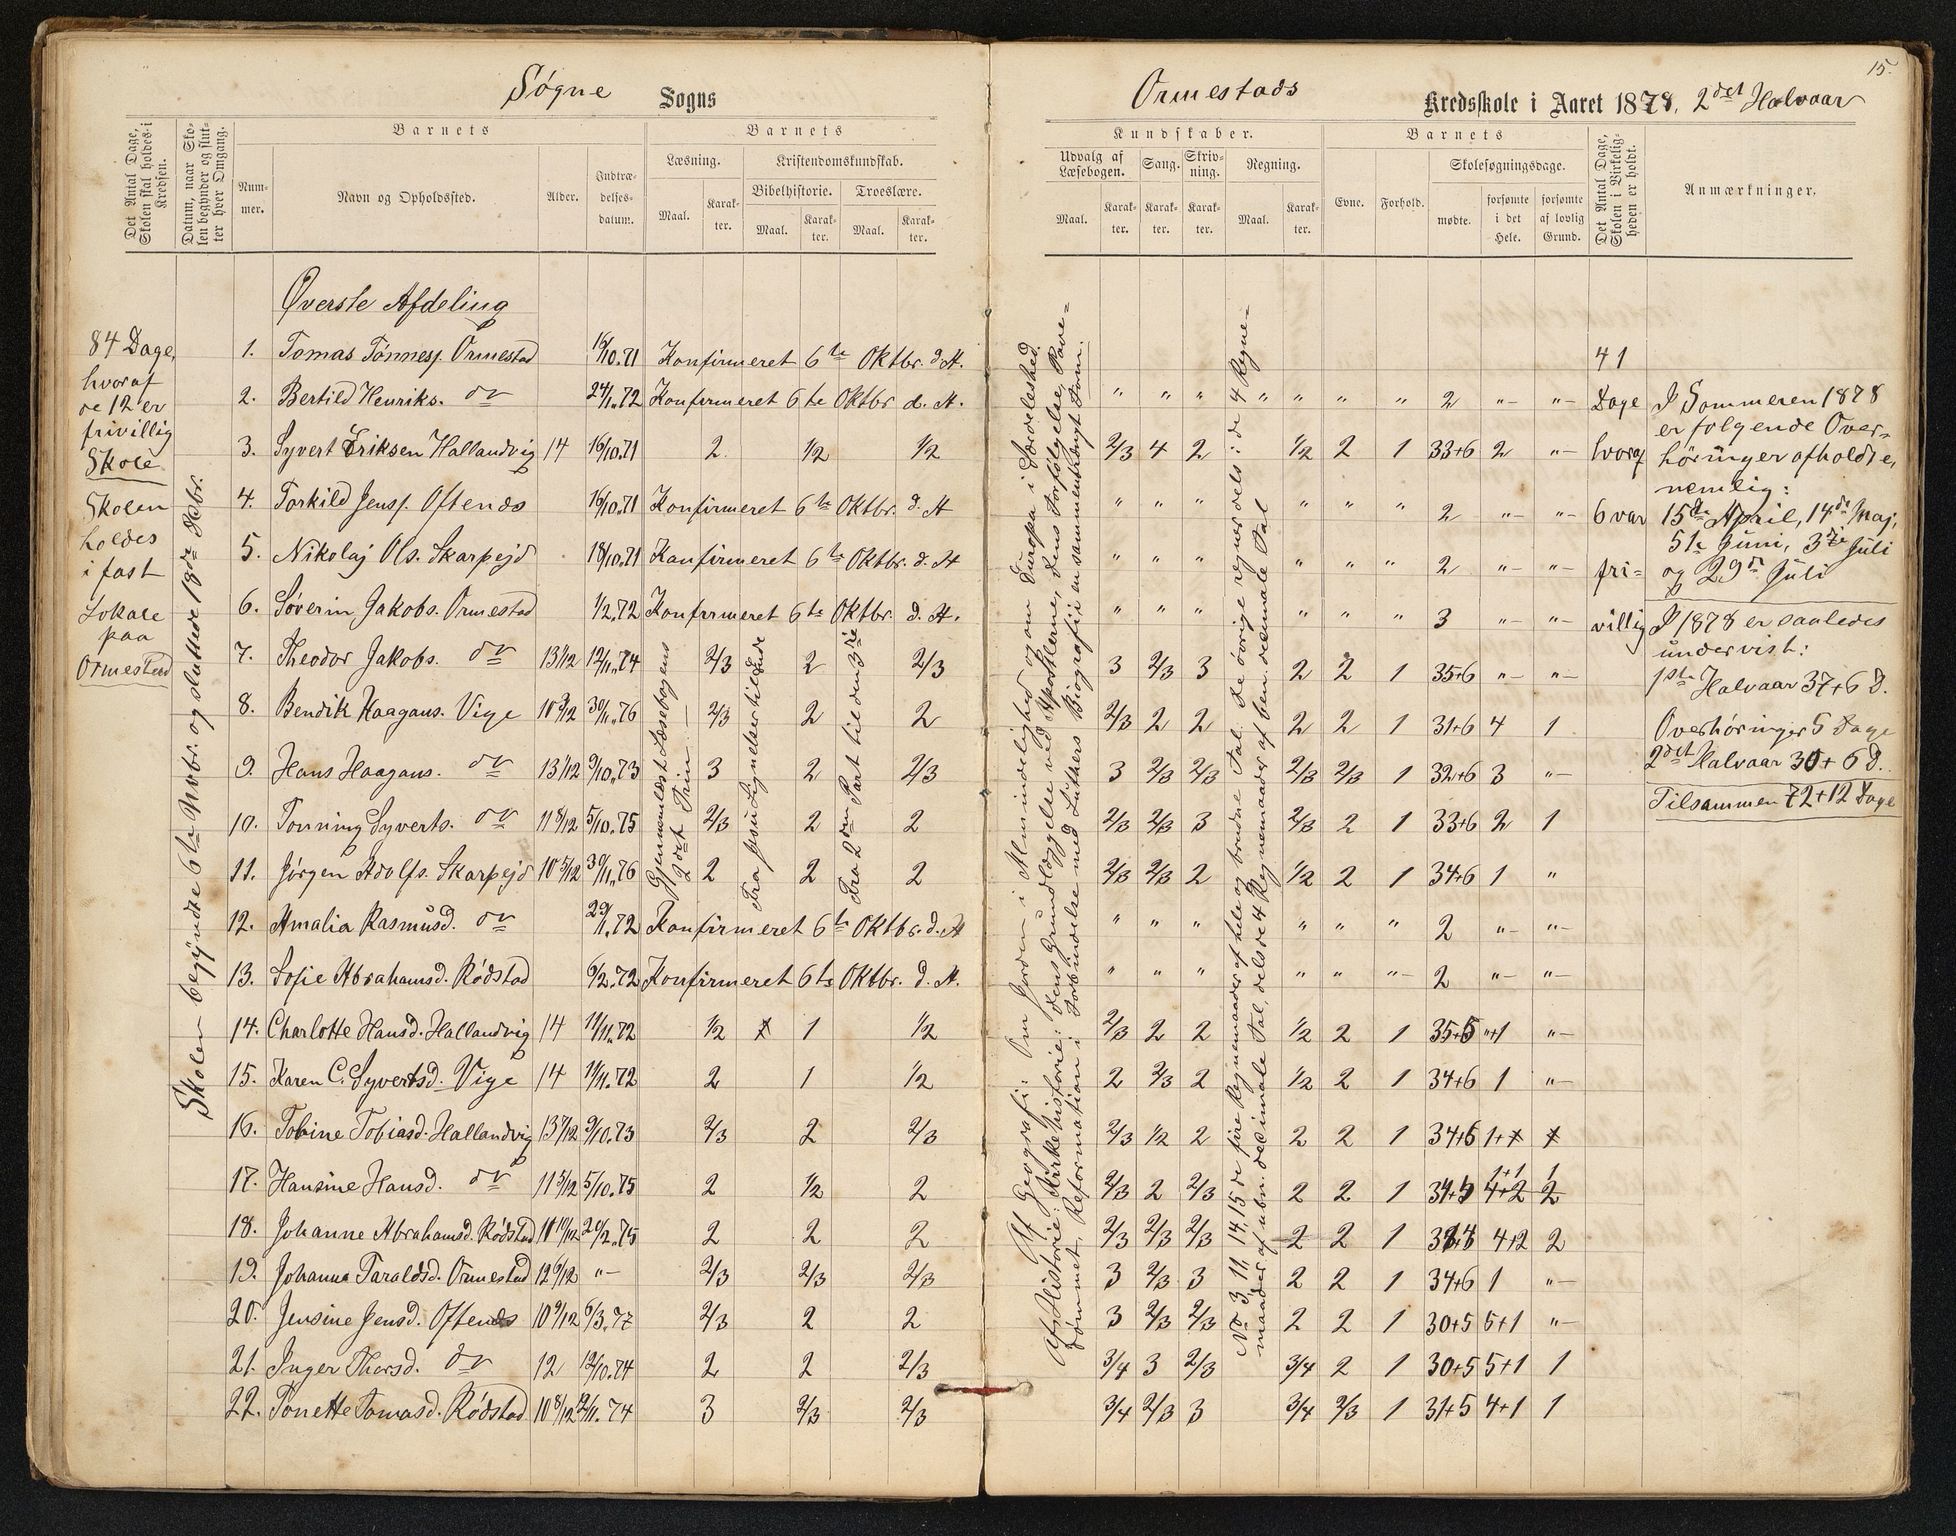 15.
Søgne Sogns
Ormestads Kredsskole i Aaret 1878, 2det Halvaar
Det Antal Dage, Skolen skal holdes i Kredsen.
Datum, naar Skolen begynder og slutter hver Omgang.
Barnets
Nummer.
Navn og Opholdssted.
Alder.
Indtrædelsesdatum.
Barnets
Læsning.
Maal.
Karakter.
Kristendomskundskab.
Bibelhistorie.
Maal.
Karakter.
Troeslære.
Maal.
Karakter.
Kundskaber.
Udvalg af Læsebogen.
Maal.
Karakter.
Sang.
Karakter.
Skrivning.
Karakter.
Regning.
Maal.
Karakter.
Barnets
Evne.
Forhold.
Skolesøgningsdage.
mødte.
forsømte i det Hele.
forsømte af lovlig Grund.
Det Antal Dage, Skolen i Virkeligheden er holdt.
Anmærkninger.
84 Dage,
hvoraf
de 12 er
frivillig
Skole
Skolen
holdes
i fast
Lokale
paa
Ormestad
Skolen begyndte 6te Novbr. og sluttede 18de Debr.
Øverste Afdeling
1. Tomas Tønnesp. Ormestad 16/10.71 Konfirmeret 6te Oktbr. d. A.
2. Bertild Henriks. do 24/1.72 Konfirmeret 6te Oktbr d. A. " " " " " " " 2 "- "-
3. Syvert Eriksen Hallandvig 14 16/10.71 2 1/2 1/2 2/3 4 2 1/2 2 1 33+6 2 "-
4. Torkild Jensp. Oftenes 16/10.71 Konfirmeret 6te Oktbr. d. A " " " " " " 2 "- "-
5. Nikolaj Ols. Skarpejd 18/10.71 Konfirmeret 6te Oktbr. d. A " " " " " " 2 "- "-
6. Søverin Jakobs. Ormestad 1/2.72 Konfirmeret 6te Oktbr. d. A. " " " " " " 3 "- "-
7. Theodor Jakobs. do 13 1/12 12/11.74 2/3 2 2/3 3 2/3 3 2 2 1 35+6 "- "-
8. Bendik Haagans. Vige 10 3/12 30/11.76 2/3 2 2 2/3 2 2 2 2 1 31+6 4 1
9. Hans Haagans. do 13 1/12 9/10.73 3 2 2/3 3 2/3 2/3 2/3 2/3 1 32+6 3 "-
10. Tønning Syverts. do 11 8/12 5/10.75 2/3 2 2 2/3 2/3 3 2/3 2 1 33+6 2 1
11. Jørgen Adolfs. Skarpejd 10 5/12 30/11.76 2 2 2 2/3 2/3 2 1/2 2 1 34+6 1 "
12. Amalia Rasmusd. do 29/1.72 Konfirmeret 6te Oktbr. d. A " " " " " " 2 "- "-
13. Sofie Abrahamsd. Rødstad 6/2.72 Konfirmeret 6te Oktbr. d. A. " " " " " "- 2 "- "-
14. Charlotte Hansd. Hallandvig 14 11/11.72 1/2 1 1/2 2/3 2 2 1/2 2 1 35+5 "+1 "-
15. Karen C. Syvertsd. Vige 14 11/11.72 2 1 1/2 2 2/3 2 1/2 2 1 34+6 1 "-
16. Tobine Tobiasd. Hallandvig 13 7/12 9/10.73 2/3 2 2/3 2/3 1/2 2 2 2 1 34+6
17. Hansine Hansd. do 11 5/12 5/10.75 2 1/2 2 2/3 2 2/3 2 2 1 4+2 2
18. Johanne Abrahamsd. Rødstad 10 11/12 20/2.75 2 2 2 2/3 2/3 2/3 2 2 1 4+2 2
19. Johanna Taraldsd. Ormestad 12 6/12 "- 2/3 2/3 2/3 3 2/3 3 2 2 1 34+6 1 "-
20. Jensine Jensd. Oftenes 10 9/12 6/3.77 2/3 2 2 3 2/3 2/3 2 2 1 30+5 5+1 "-
21. Inger Thorsd. do 12 12/10.74 2 2 2/3 3/4 3 2/3 3/4 2 1 30+5 5+1 1
22. Tonette Tomasd. Rødstad 10 8/12 2/11.74 3 2/3 2/3 3/4 2/3 3 3/4 2/3 1 31+5 4+1 1
Gjennemlæst Læsebogens
2det Trin
Fra Jesu Lignelser til Ende
Fra 2den Part til den 3die
Af Geografi: Om Jorden i Almindelighed og om Europa i Særdeleshed.
Af Historie: Kirkehistorie: Dens Grundlæggelse ved Apostlerne, dens Forfølgelse, Pave-
dømmet, Reformation i Forbindelse med Luthers Biografi i en sammentrængt Form.
No 3, 11, 14, 15 de fire Regnemaader af hele og brudne Tal. De øvrige regner dels: de 4 Regne-
maader af ubn. decimale Tal, dels de 4 Regnemaader af ben. decimale Tal
41
Dage
hvoraf
6 var
fri-
villig
I Sommeren 1878
er følgende Over-
høringer afholdte,
nemlig:
15de April, 14de Maj,
5te Juni, 3die Juli
og 29de Juli
I 1878 er saaledes
undervist:
1ste Halvaar 37+6 D.
Overhøringer 5 Dage
2det Halvaar 30+6 D.
Tilsammen 72+12 Dage